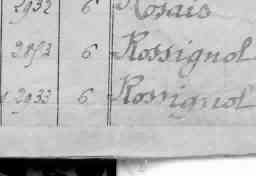 2932 6 Rosais
2953 6 Rossignol
2933 6 Rossignol